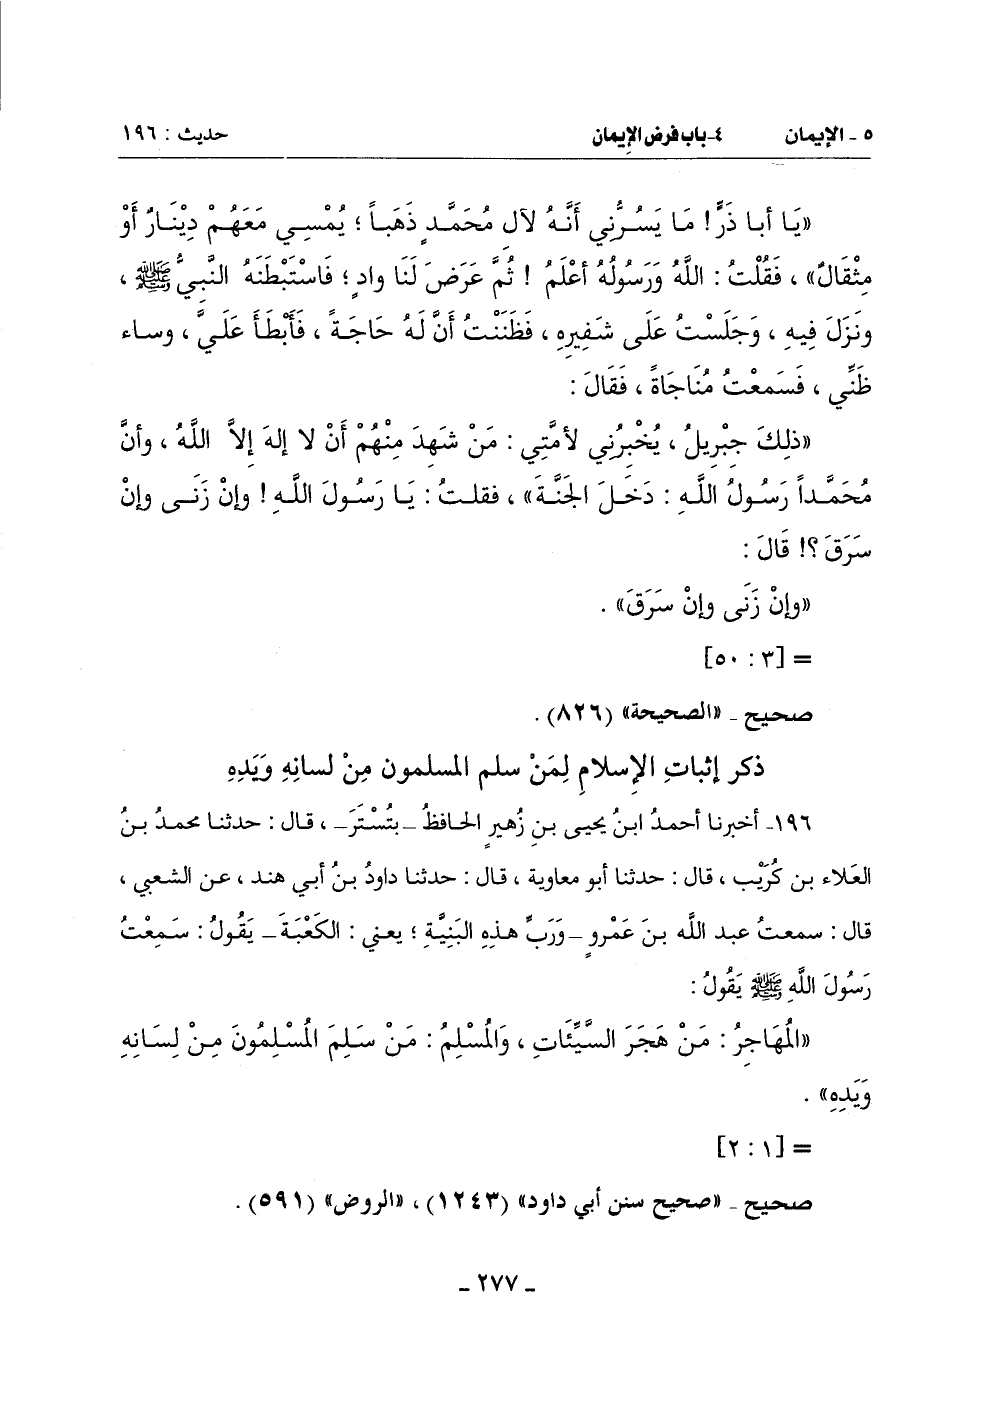 ٥ ـ الإيمان ٤ـ باب فرض الإيمان حديث : ١٩٦
«يَا أبا ذَرٍّ! مَا يَسُرُّنِي أَنَّهُ لآلِ مُحَمَّدٍ ذَهَباً ؛ يُمْسِي مَعَهُمْ دِيْنَارٌ أَوْ
مِثْقَالٌ» ، فَقُلْتُ : اللَّهُ وَرَسُولُهُ أعْلَمُ ! ثُمَّ عَرَضَ لَنَا وادٍ ؛ فَاسْتَبْطَنَهُ النَّبِيُّ ﷺ ،
ونَزَلَ فِيهِ ، وَجَلَسْتُ عَلَى شَفِيرِهِ ، فَظَنَنْتُ أَنَّ لَهُ حَاجَةً ، فَأَبْطَأَ عَلَيَّ ، وساء
ظَنِّي ، فَسَمِعْتُ مُنَاجَاةً ، فَقَالَ :
«ذلِكَ جِبْرِيلُ ، يُخْبِرُنِي لأمَّتِي : مَنْ شَهِدَ مِنْهُمْ أَنْ لا إلهَ إلاَّ اللَّهُ ، وأنَّ
مُحَمَّداً رَسُولُ اللَّهِ : دَخَلَ الجَنَّةَ» ، فقلتُ : يَا رَسُولَ اللَّهِ ! وإنْ زَنَى وإنْ
سَرَقَ ؟! قَالَ :
«وإنْ زَنَى وإنْ سَرَقَ» .
= [٣ : ٥٠]
صحيح ـ «الصحيحة» (٨٢٦) .
ذكر إثباتِ الإِسلامِ لِمَنْ سلم المسلمون مِنْ لسانِهِ وَيَدِهِ
١٩٦ـ أخبرنا أحمدُ ابنُ يحيى بنِ زُهيرٍ الحافظُ ـ بتُسْتَرَ ـ ، قال : حدثنا محمدُ بنُ
العَلاء بن كُرَيْب ، قال : حدثنا أبو معاوية ، قال : حدثنا داودُ بنُ أبي هند ، عن الشعبي ،
قال : سمعتُ عبد الله بنَ عَمْرٍو ـ وَرَبِّ هذِهِ البَنِيَّةِ ؛ يعني : الكَعْبَةَ ـ يَقُولُ : سَمِعْتُ
رَسُولَ اللَّهِ ﷺ يَقُولُ :
«المُهَاجِرُ : مَنْ هَجَرَ السَّيِّئَاتِ ، وَالمُسْلِمُ : مَنْ سَلِمَ المُسْلِمُونَ مِنْ لِسَانِهِ
وَيَدِهِ» .
= [١ : ٢]
صحيح ـ «صحيح سنن أبي داود» (١٢٤٣) ، «الروض» (٥٩١) .
ـ ٢٧٧ ـ